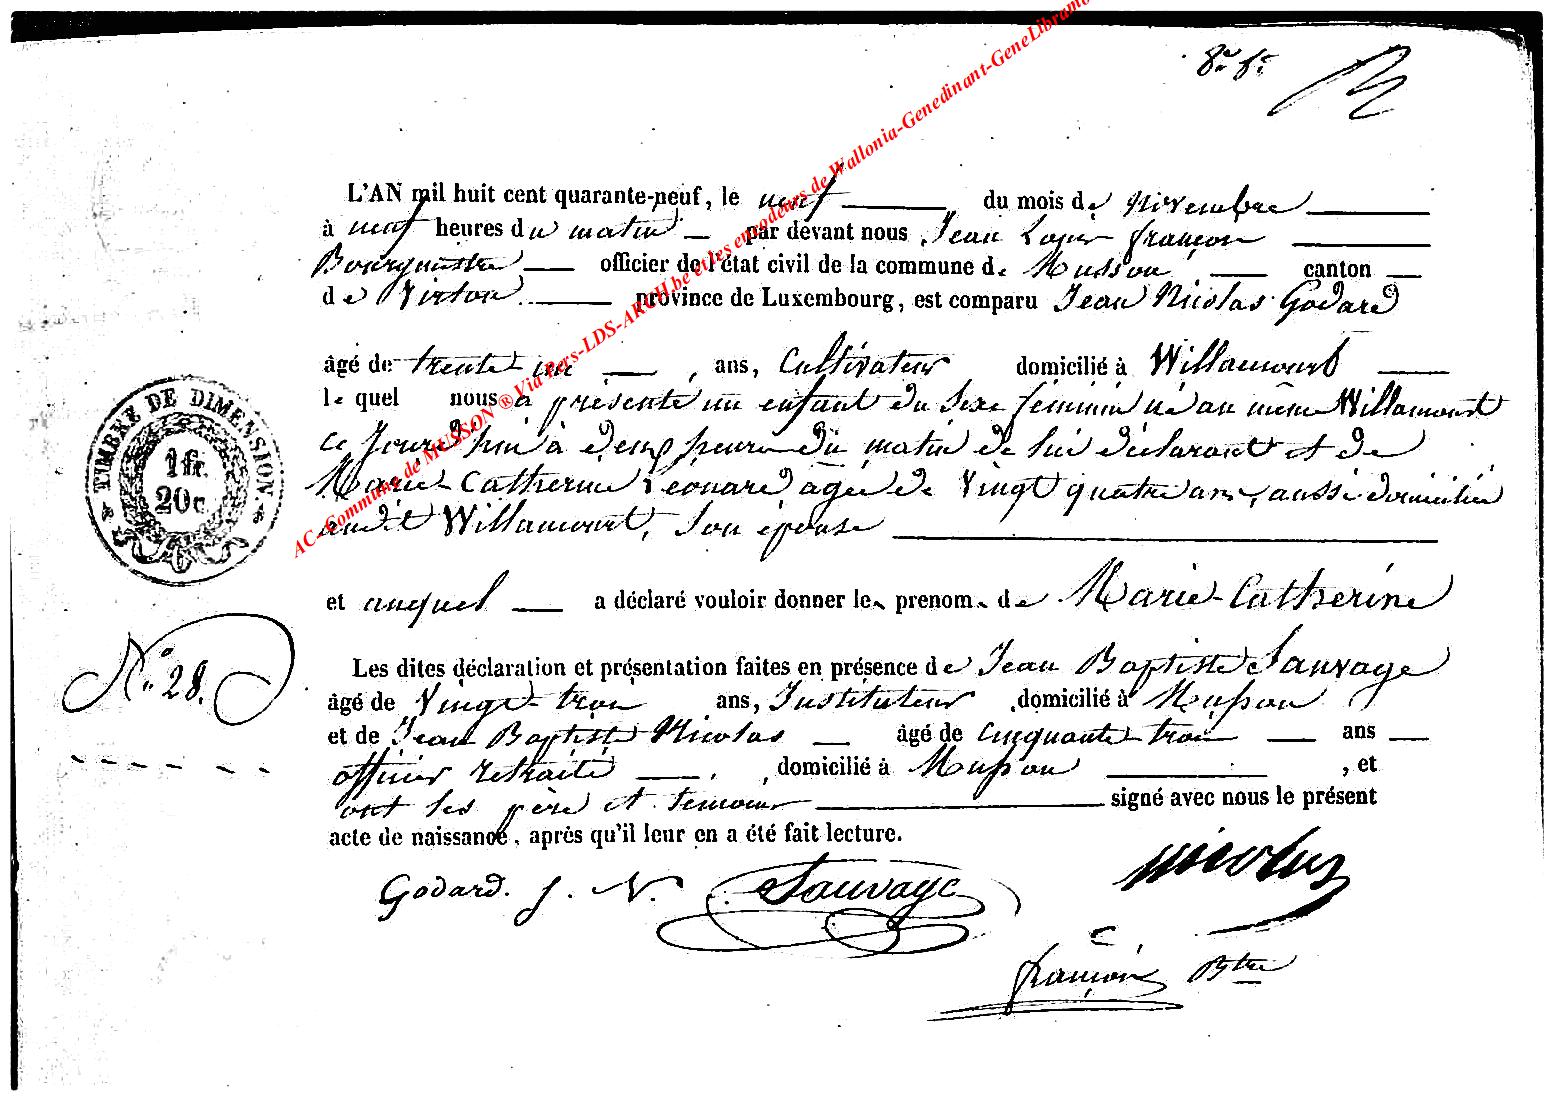 8e f.t
L'AN mil huit cent quarante-neuf, le neuf du mois de novembre
à neuf heures du matin par devant nous Jean Louis françois
Bourgmestre officier de l'état civil de la commune de Musson, canton
de Virton province de Luxembourg, est comparu Jean Nicolas Godard
âgé de trente un ans, Cultivateur domicilié à Willancourt
le quel nous a présenté un enfant du sexe féminin né au même Willancourt
ce jourd'hui à deux heures du matin de lui déclarant et de
Marie-Catherine Léonard agée de Vingt quatre ans, aussi domiciliée
audit Willancourt, son épouse
et auquel a déclaré vouloir donner les prenoms de Marie-Catherine
Les dites déclaration et présentation faites en présence de Jean Baptiste Sauvage
âgé de Vingt-trois ans, Instituteur domicilié à Musson
et de Jean Baptiste Nicolas âgé de cinquante trois ans
officier retraité, domicilié à Musson, et
ont les père et temoins signé avec nous le présent
acte de naissance, après qu'il leur en a été fait lecture.
Godard. J. N. Sauvage Nicolas
françois Btre
TIMBRE DE DIMENSION
1 fr.
20 c.
No 28.
AC-Commune de MUSSON ® Via Pers-LDS-ARCH.be et les encodeurs de Wallonia-Genedinant-GeneLibramo